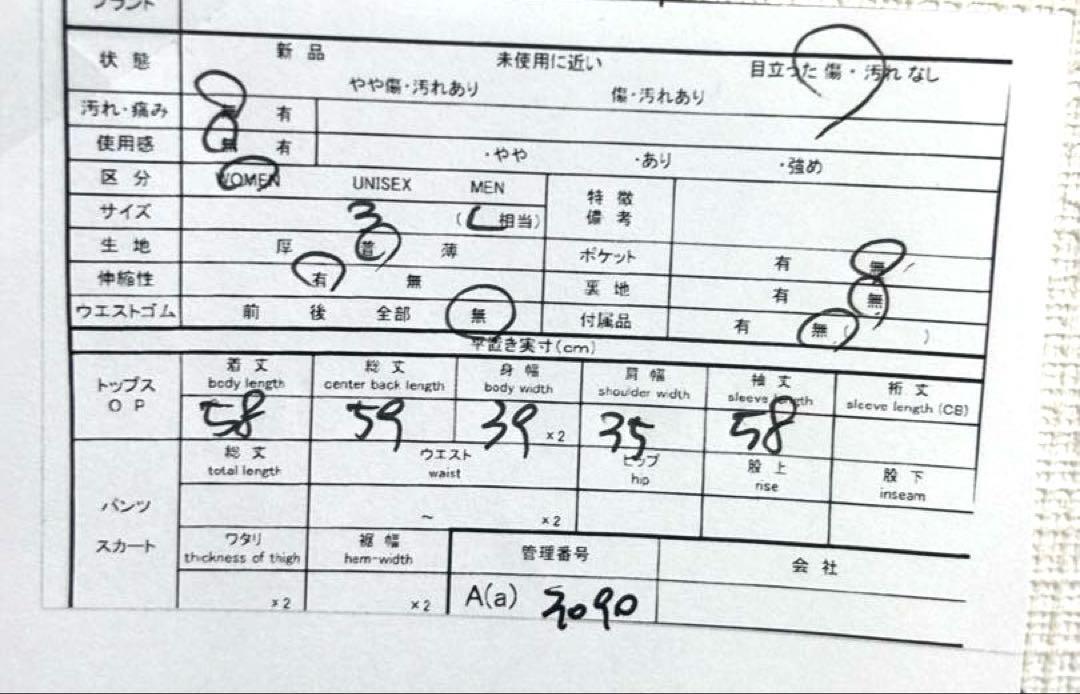 ブランド
状態 新品 未使用に近い 目立った傷・汚れなし
やや傷・汚れあり 傷・汚れあり
汚れ・痛み 無 有
使用感 無 有 ・やや ・あり ・強め
区分 WOMEN UNISEX MEN 特徴
備考
サイズ 3 (L相当)
生地 厚 普 薄 ポケット 有 無
伸縮性 有 無 裏地 有 無
ウエストゴム 前 後 全部 無 付属品 有 無 ( )
平置き実寸(cm)
トップス
OP
着丈 総丈 身幅 肩幅 袖丈 裄丈
body length center back length body width shoulder width sleeve length sleeve length (CB)
58 59 39 ×2 35 58
総丈 ウエスト ヒップ 股上 股下
total length waist hip rise inseam
パンツ
~ ×2
スカート
ワタリ 裾幅 管理番号 会社
thickness of thigh hem-width
×2 ×2 A(a) 3090